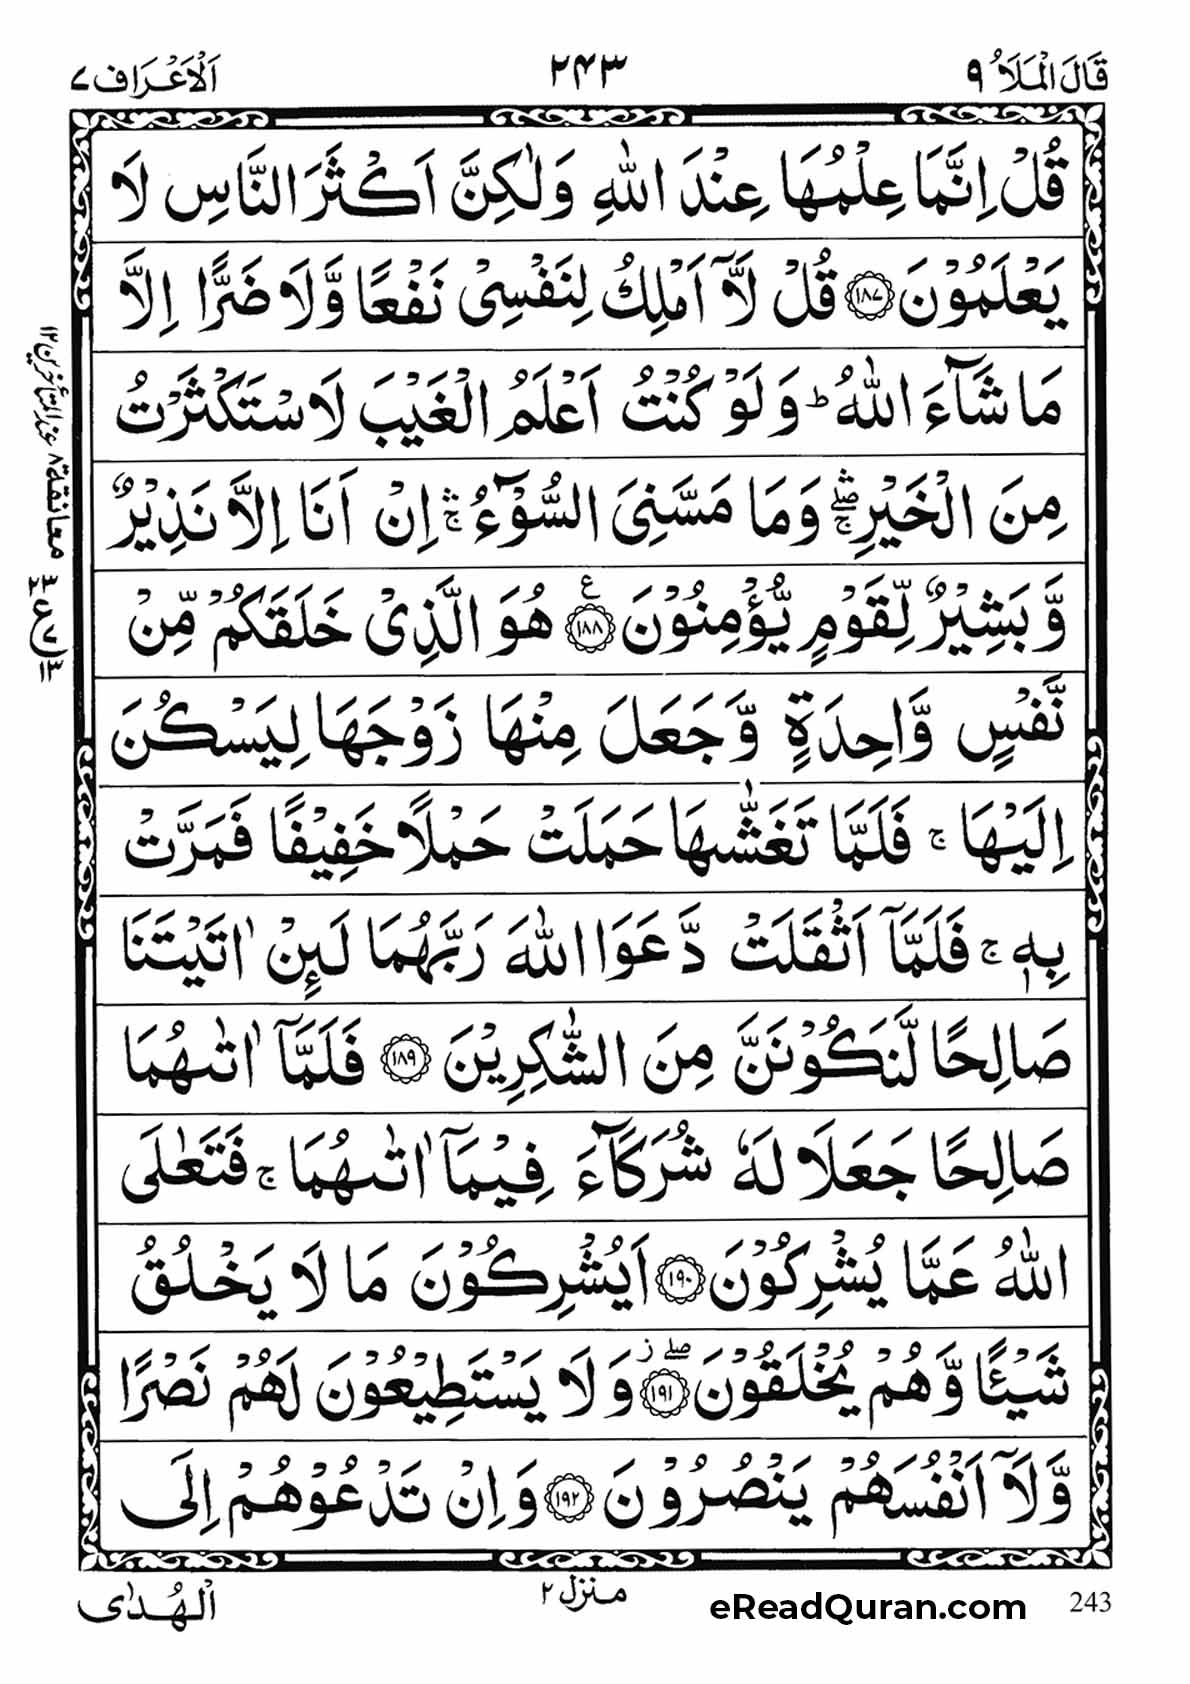 قَالَ الْمَلَاُ ٩
٢٤٣
اَلْاَعْرَاف ٧
قُلْ اِنَّمَا عِلْمُهَا عِنْدَ اللّٰهِ وَلٰكِنَّ اَكْثَرَ النَّاسِ لَا
يَعْلَمُوْنَ ﴿١٨٧﴾ قُلْ لَّآ اَمْلِكُ لِنَفْسِىْ نَفْعًا وَّلَا ضَرًّا اِلَّا
مَا شَآءَ اللّٰهُ ؕ وَلَوْ كُنْتُ اَعْلَمُ الْغَيْبَ لَاسْتَكْثَرْتُ
مِنَ الْخَيْرِ ۛۖۚ وَمَا مَسَّنِىَ السُّوْٓءُ ۛۚ اِنْ اَنَا اِلَّا نَذِيْرٌ
وَّبَشِيْرٌ لِّقَوْمٍ يُّؤْمِنُوْنَ ﴿١٨٨﴾ ع هُوَ الَّذِىْ خَلَقَكُمْ مِّنْ
نَّفْسٍ وَّاحِدَةٍ وَّجَعَلَ مِنْهَا زَوْجَهَا لِيَسْكُنَ
اِلَيْهَا ۚ فَلَمَّا تَغَشّٰىهَا حَمَلَتْ حَمْلًا خَفِيْفًا فَمَرَّتْ
بِهٖ ۚ فَلَمَّآ اَثْقَلَتْ دَّعَوَا اللّٰهَ رَبَّهُمَا لَئِنْ اٰتَيْتَنَا
صَالِحًا لَّنَكُوْنَنَّ مِنَ الشّٰكِرِيْنَ ﴿١٨٩﴾ فَلَمَّآ اٰتٰىهُمَا
صَالِحًا جَعَلَا لَهٗ شُرَكَآءَ فِيْمَآ اٰتٰىهُمَا ۚ فَتَعٰلَى
اللّٰهُ عَمَّا يُشْرِكُوْنَ ﴿١٩٠﴾ اَيُشْرِكُوْنَ مَا لَا يَخْلُقُ
شَيْئًا وَّهُمْ يُخْلَقُوْنَ ﴿١٩١﴾ ۖ ز وَلَا يَسْتَطِيْعُوْنَ لَهُمْ نَصْرًا
وَّلَآ اَنْفُسَهُمْ يَنْصُرُوْنَ ﴿١٩٢﴾ وَاِنْ تَدْعُوْهُمْ اِلَى
معانقة ٨ عند المتأخرين ١٢
243
eReadQuran.com
منزل ٢
اَلْهُدٰى